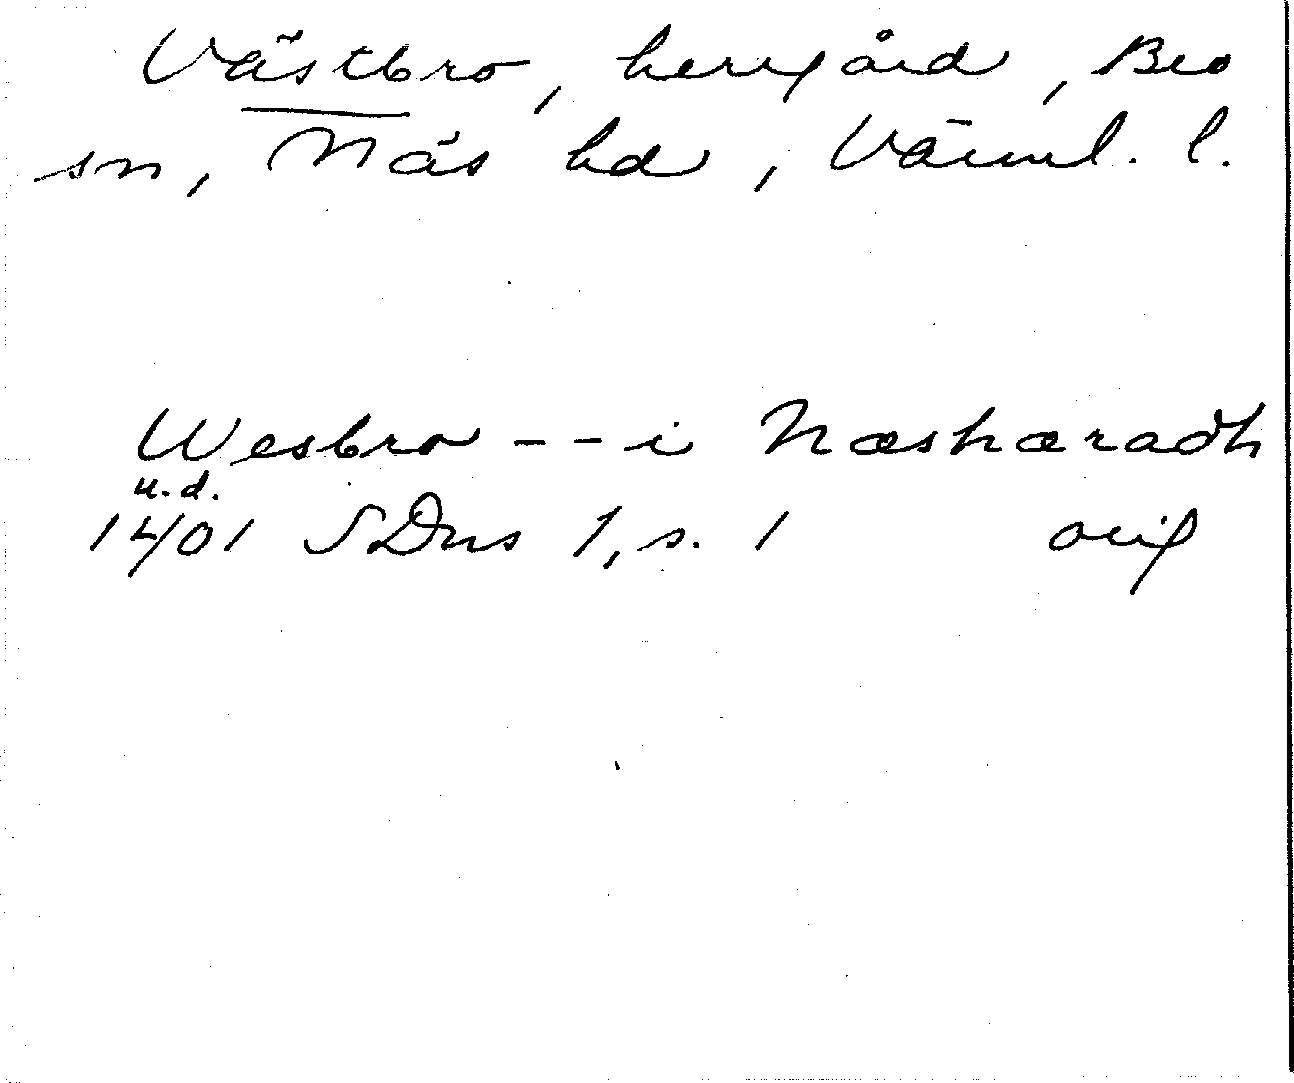 Västbro, herrgård, Bro
sn, Näs hd, Värml. l.
Wesbro -- i Næshæradh
u.d.
1401 SDns 1, s. 1 orig